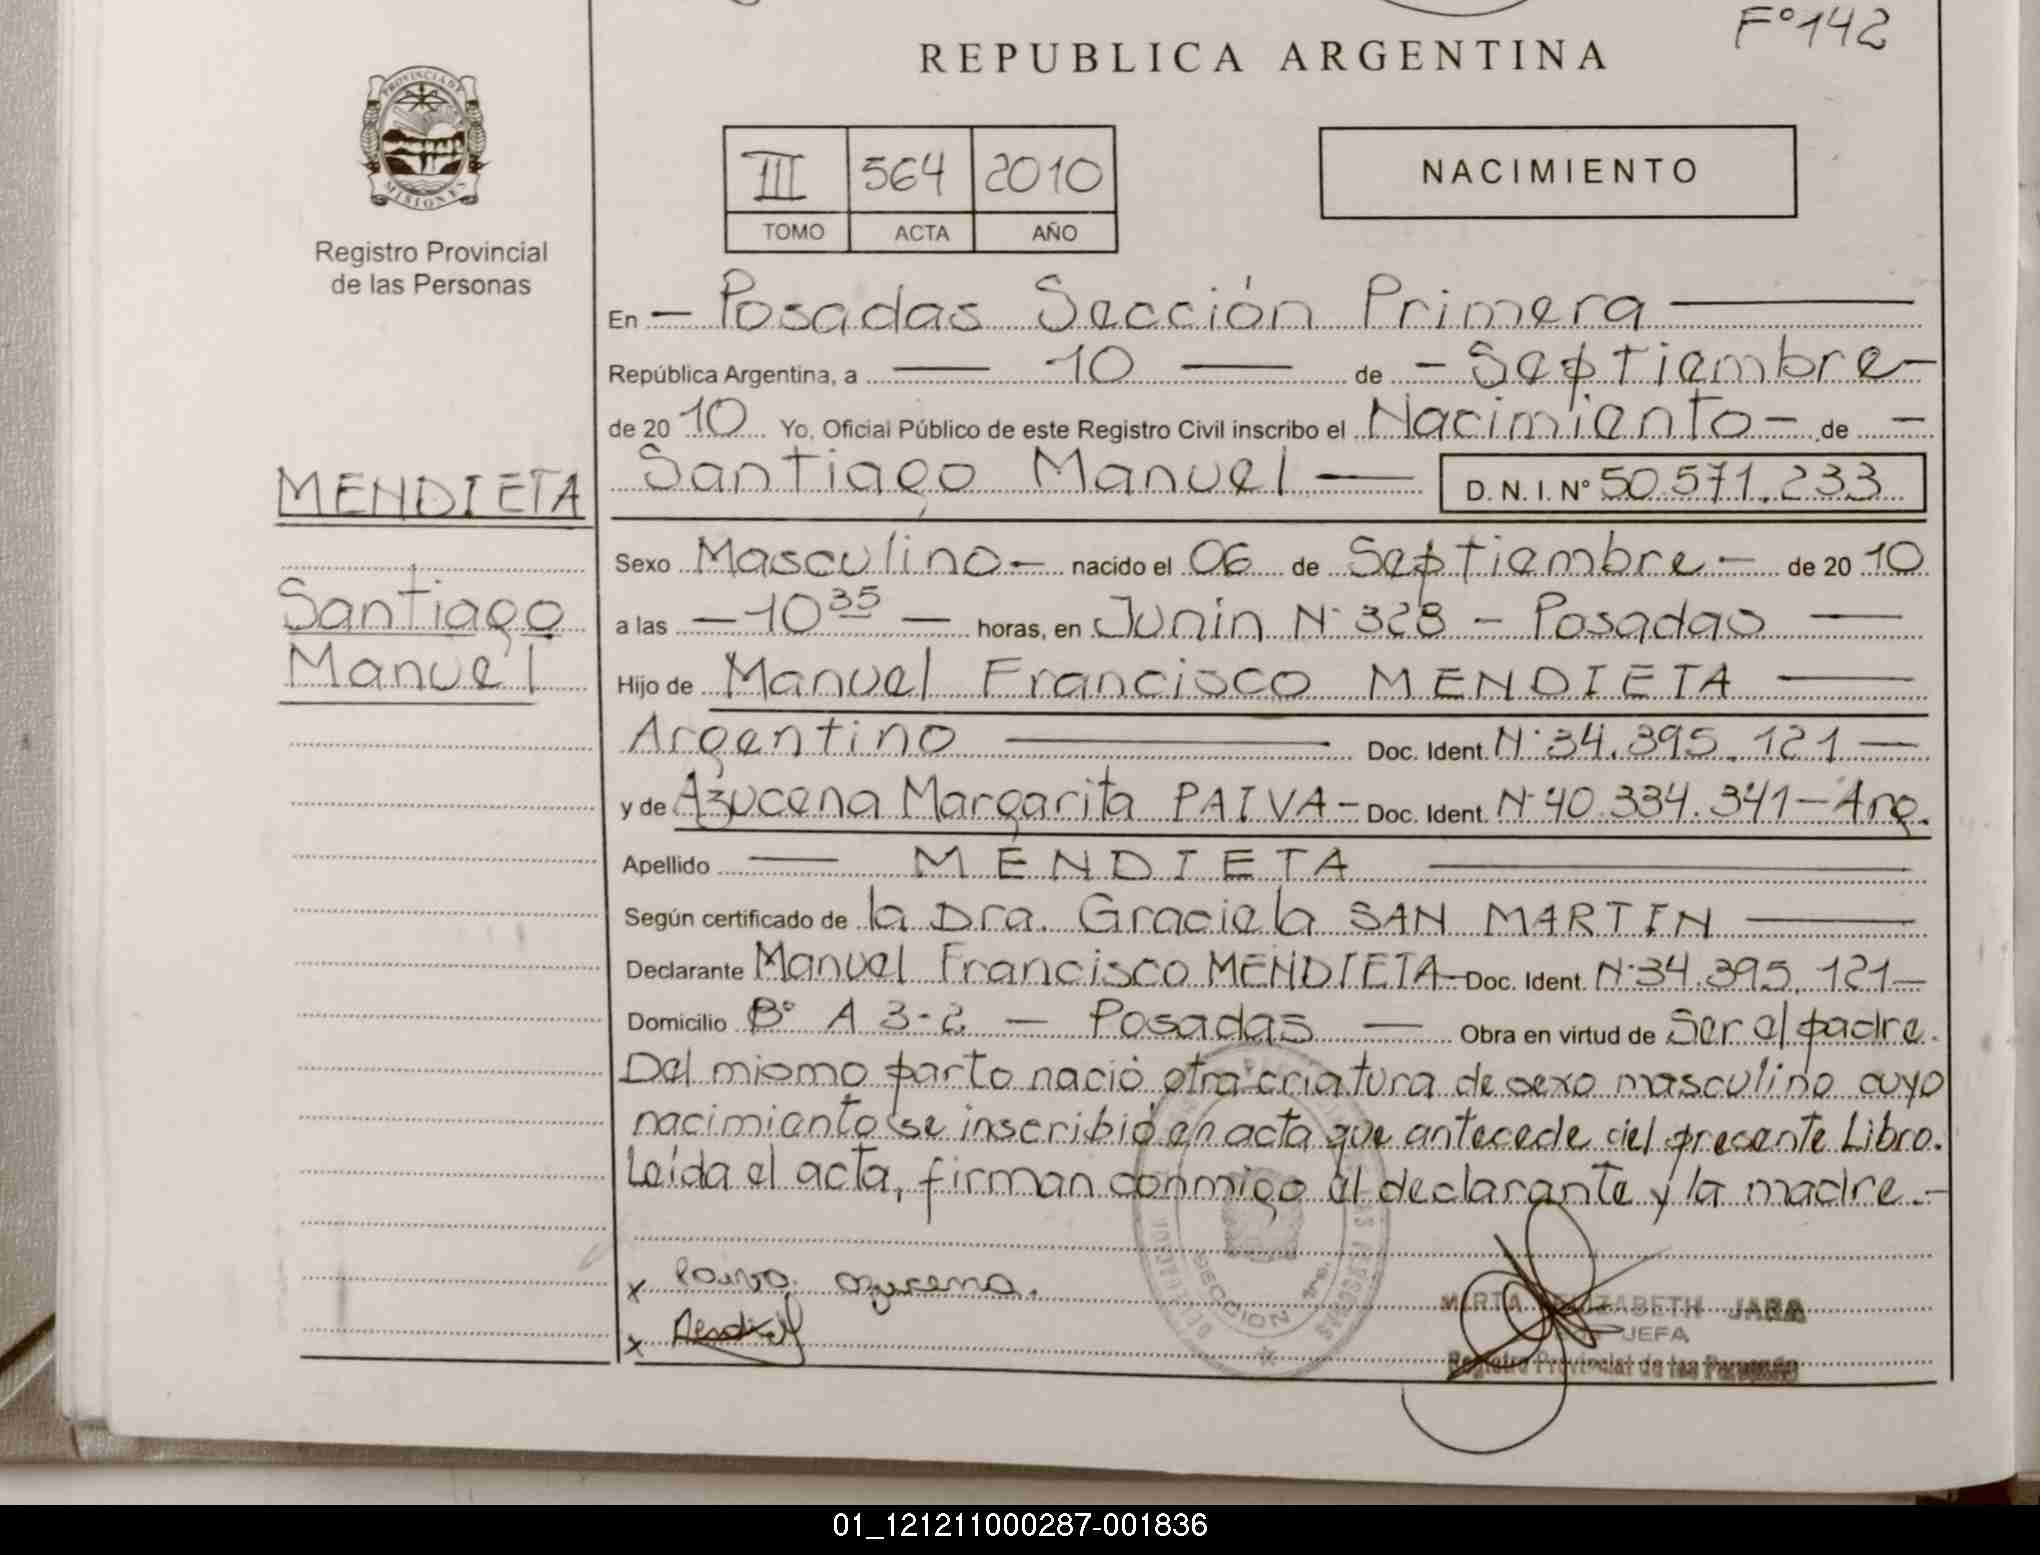 F° 142
REPUBLICA ARGENTINA
PROVINCIA DE
MISIONES
III 564 2010
TOMO ACTA AÑO
NACIMIENTO
Registro Provincial
de las Personas
En - Posadas Sección Primera
República Argentina, a 10 de - Septiembre -
de 20 10 Yo, Oficial Público de este Registro Civil inscribo el Nacimiento - de -
Santiago Manuel D. N. I. N° 50.571.233
MENDIETA
Santiago
Manuel
Sexo Masculino - nacido el 06 de Septiembre - de 20 10
a las - 10 35 - horas, en Junin N° 328 - Posadas
Hijo de Manuel Francisco MENDIETA
Argentino Doc. Ident. N° 34.395.121
y de Azucena Margarita PAIVA - Doc. Ident. N° 40.334.341 - Arg.
Apellido MENDIETA
Según certificado de la Dra. Graciela SAN MARTIN
Declarante Manuel Francisco MENDIETA - Doc. Ident. N° 34.395.121 -
Domicilio B° A 3-2 - Posadas - Obra en virtud de Ser el padre.
Del mismo parto nació otra criatura de sexo masculino cuyo
nacimiento se inscribió en acta que antecede del presente Libro.
Leída el acta, firman conmigo el declarante y la madre.-
x Paiva azucena.
x
SECCION 1ra.
MIRTA ELIZABETH JARA
JEFA
Registro Provincial de las Personas
01_121211000287-001836